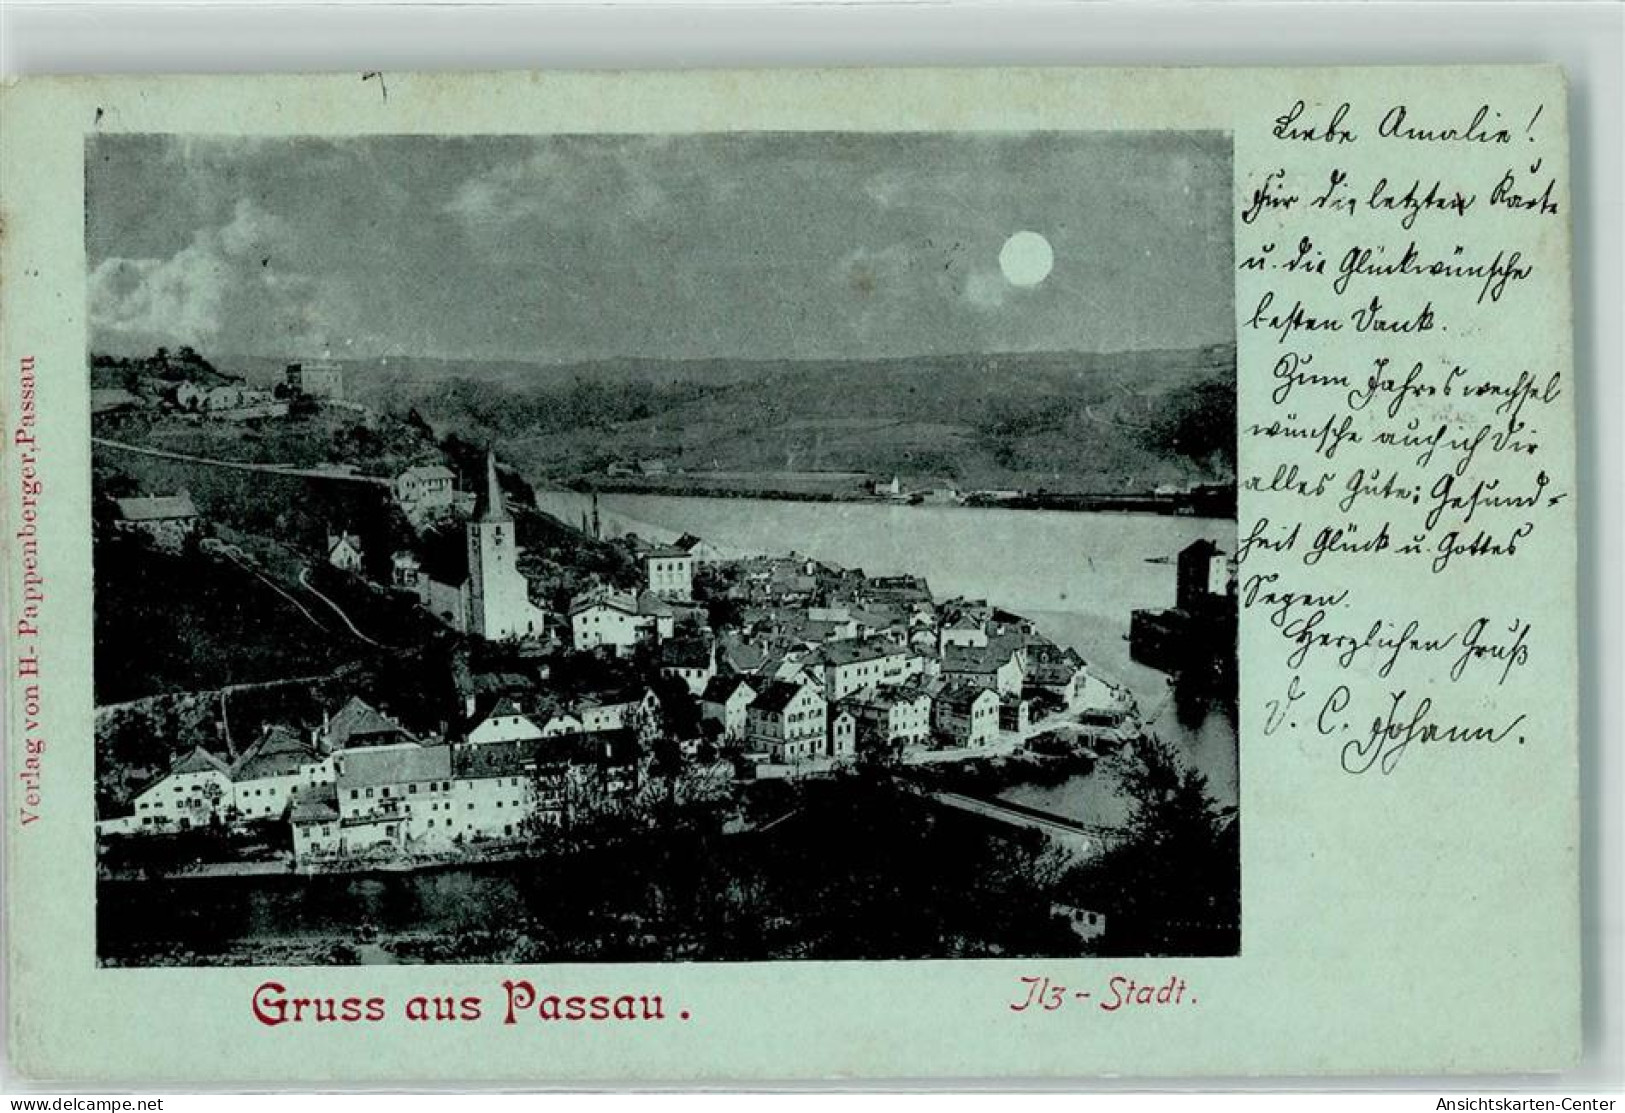 Liebe Amalie!
Für die letzten Karte
u. die Glückwünsche
besten Dank.
Zum Jahreswechsel
wünsche auch ich Dir
alles Gute; Gesund-
heit Glück u. Gottes
Segen.
Herzlichen Gruß
D. C. Johann.
Verlag von H. Pappenberger, Passau
Gruss aus Passau.
Ilz-Stadt.
delcampe.net
Ansichtskarten-Center